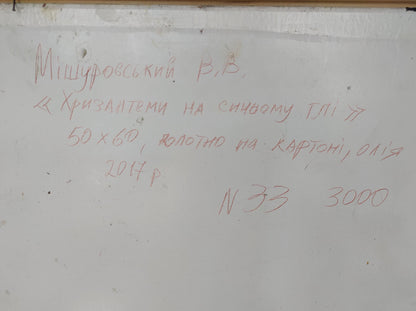 Мішуровський В.В.
« Хризантеми на синьому тлі »
50 х 60, полотно на картоні, олія
2017 р.
N 33 3000